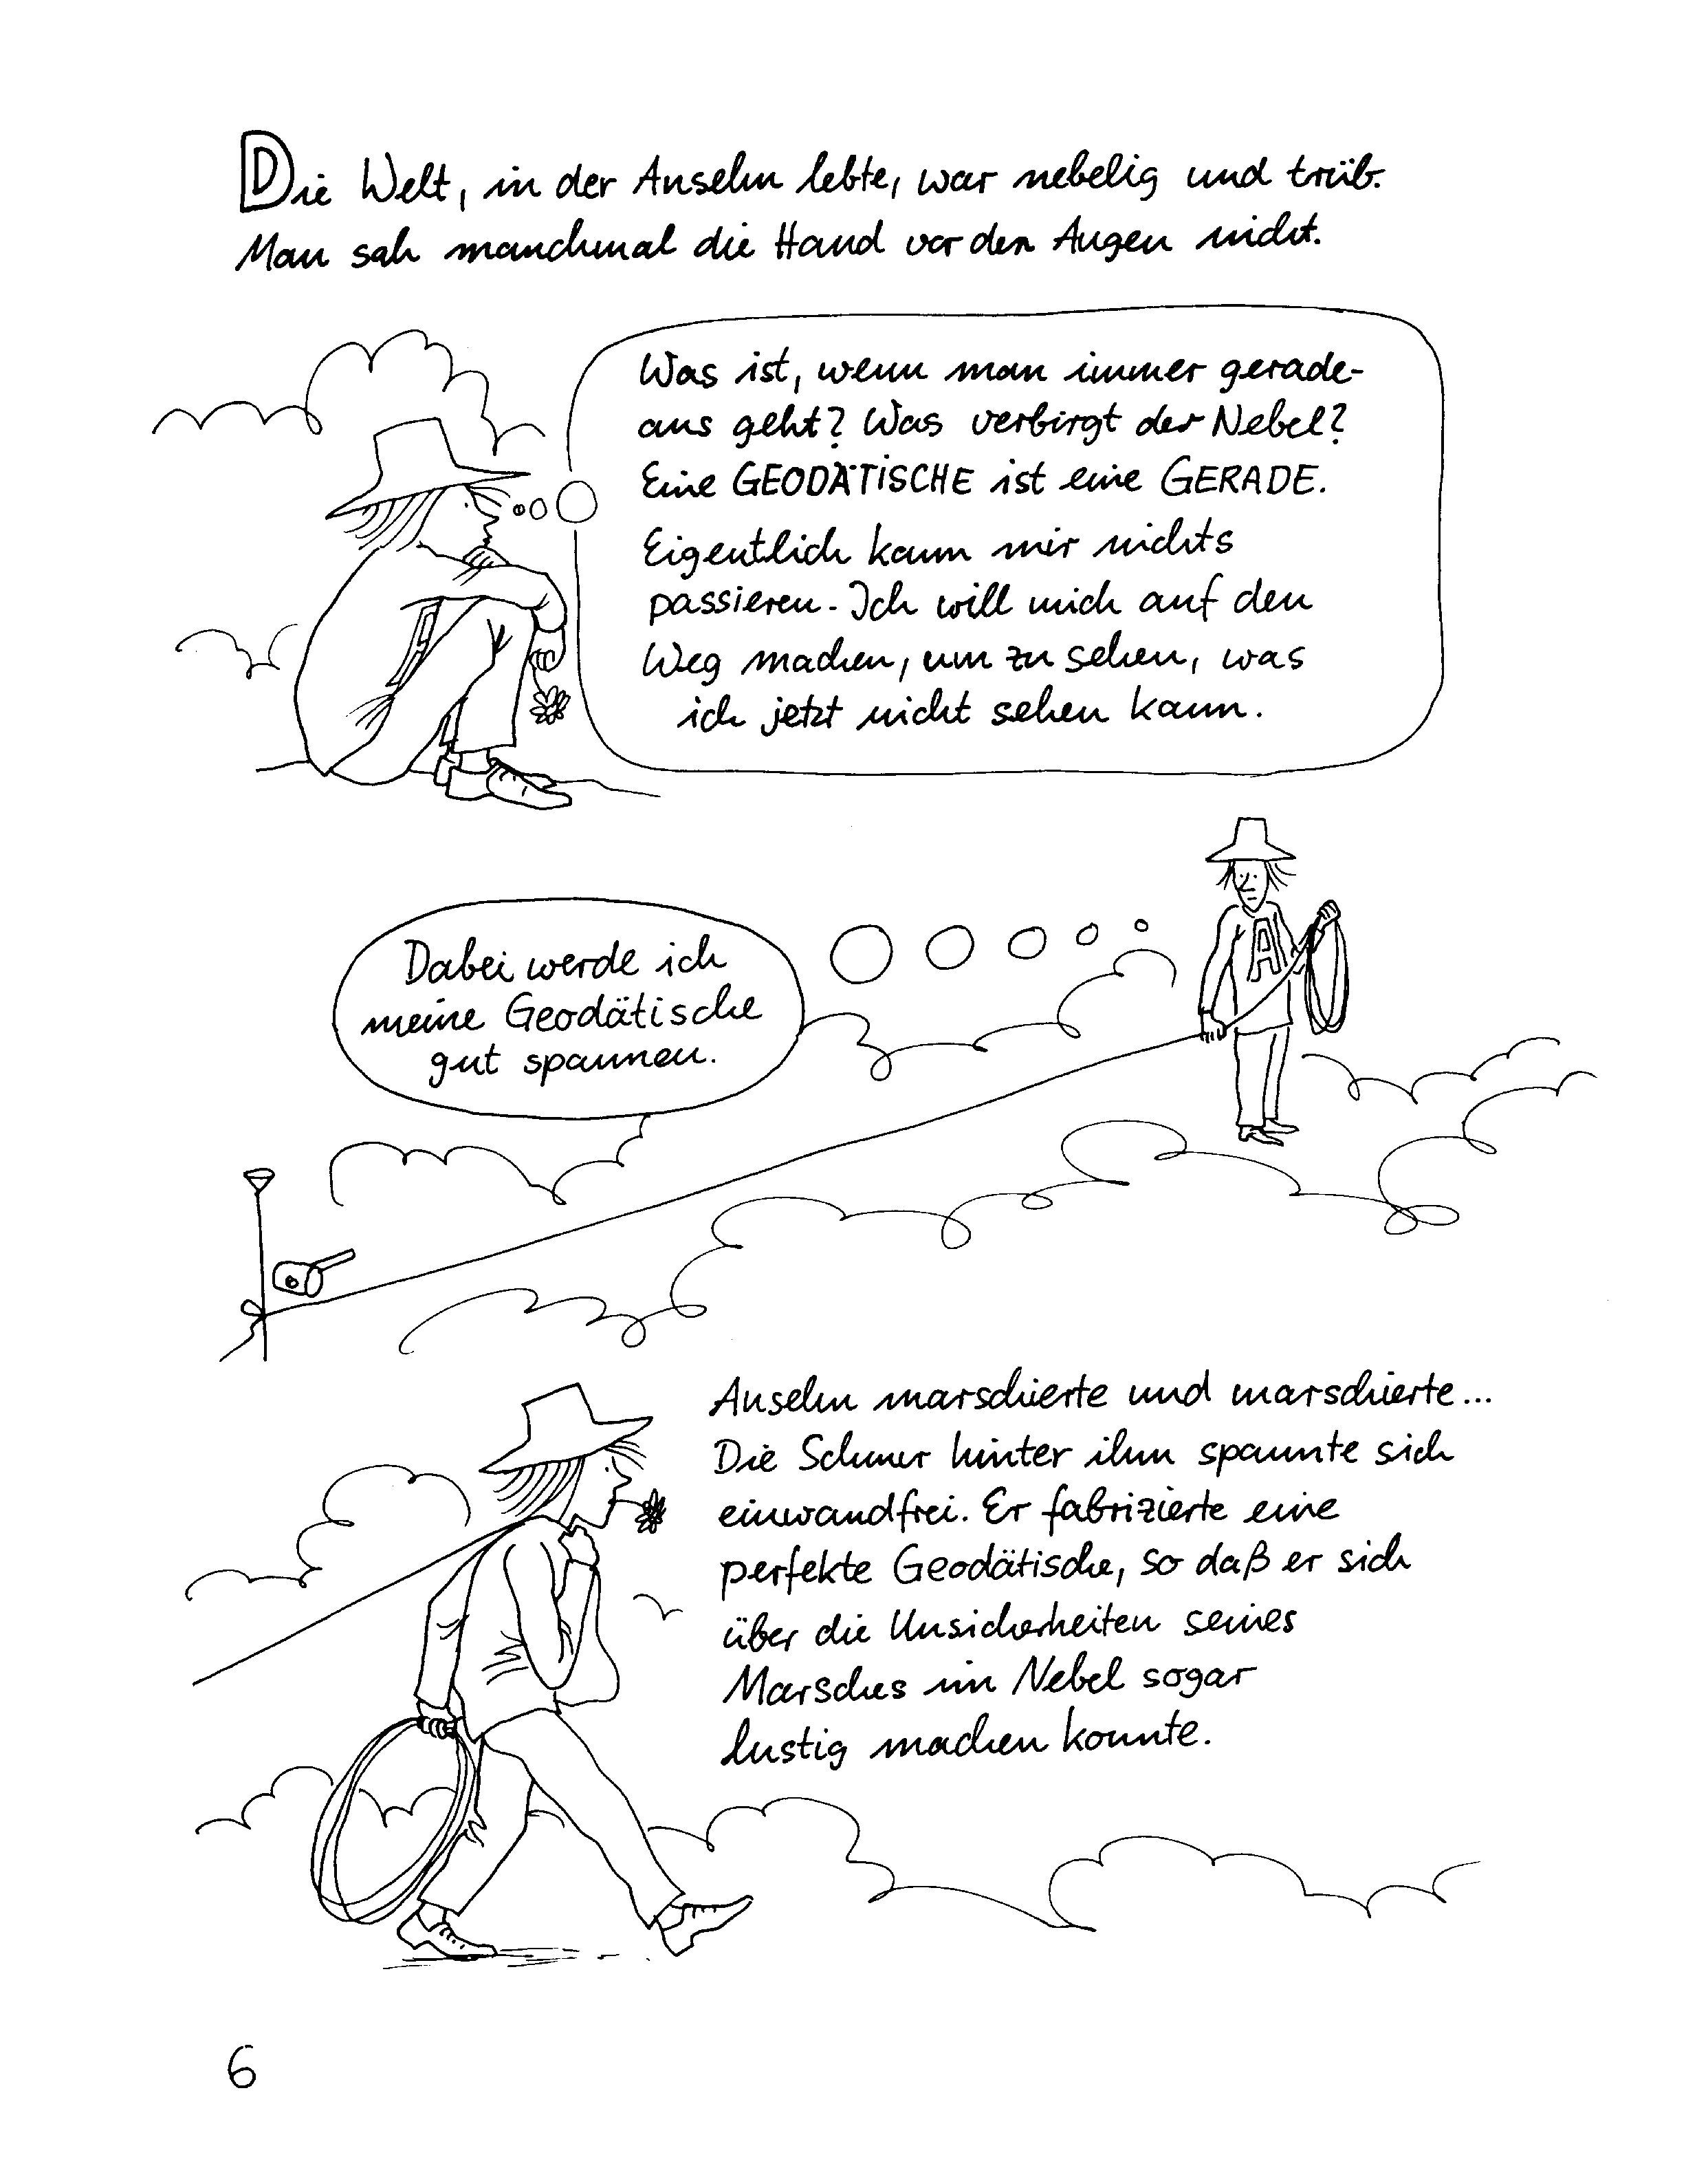 Die Welt, in der Anselm lebte, war nebelig und trüb.
Man sah manchmal die Hand vor den Augen nicht.
Was ist, wenn man immer gerade-
aus geht? Was verbirgt der Nebel?
Eine GEODÄTISCHE ist eine GERADE.
Eigentlich kann mir nichts
passieren. Ich will mich auf den
Weg machen, um zu sehen, was
ich jetzt nicht sehen kann.
A
Dabei werde ich
meine Geodätische
gut spannen.
Anselm marschierte und marschierte...
Die Schnur hinter ihm spannte sich
einwandfrei. Er fabrizierte eine
perfekte Geodätische, so daß er sich
über die Unsicherheiten seines
Marsches im Nebel sogar
lustig machen konnte.
6